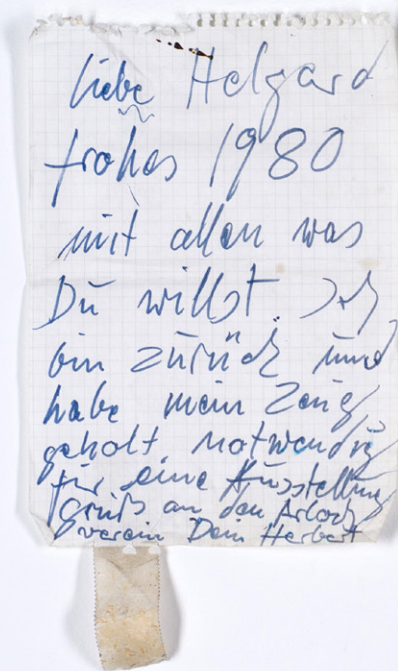 liebe Helgard
frohes 1980
mit allen was
Du willst. Ich
bin zurück und
habe mein Zeug
geholt. Notwendig
für eine Ausstellung
Gruß an den
verein Dein Herbert